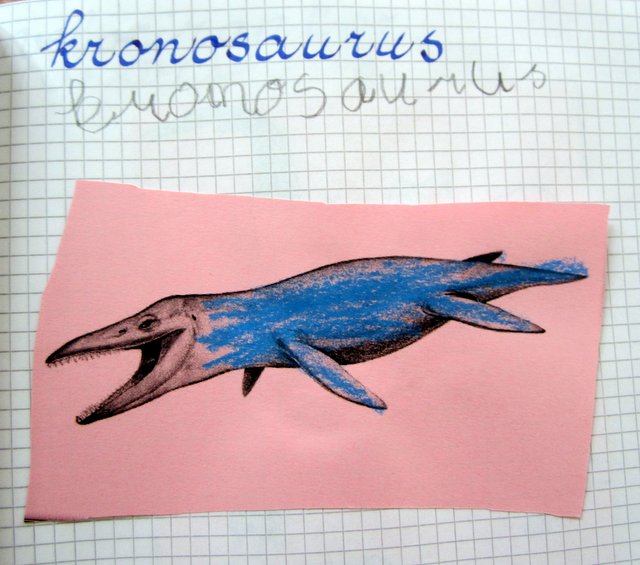 kronosaurus
kronosaurus